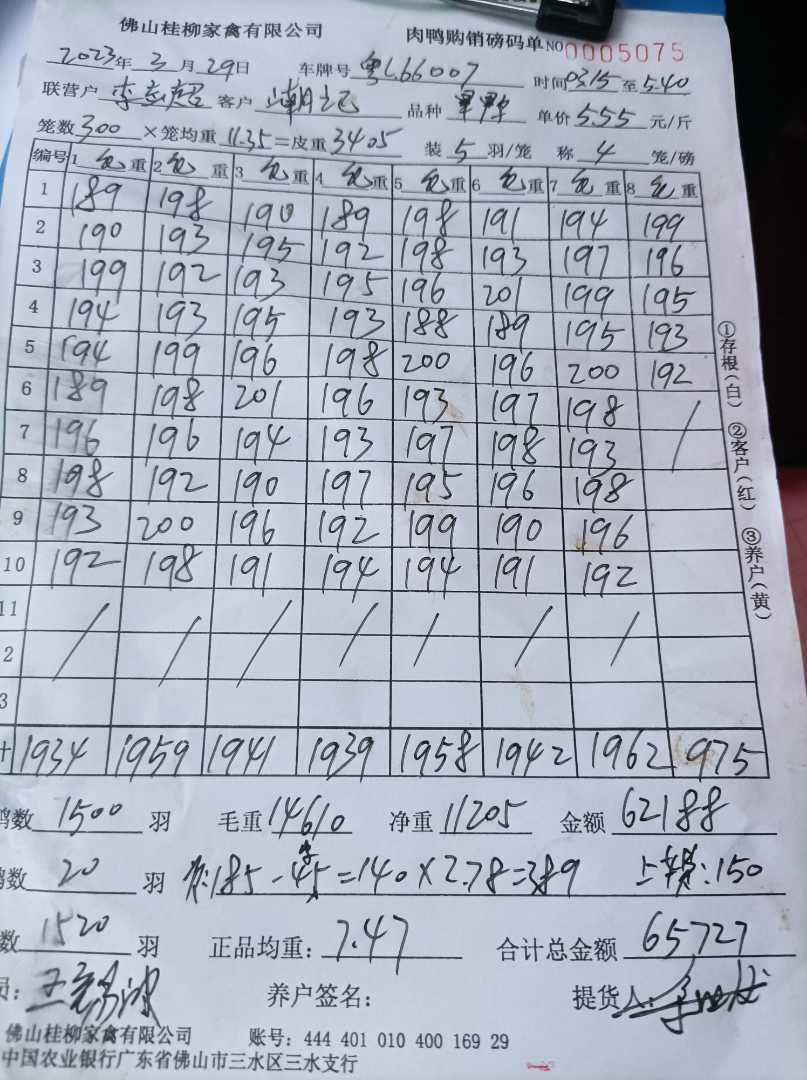 佛山桂柳家禽有限公司 肉鸭购销磅码单 NO 0005075
2023年 3月 29日 车牌号 粤L66007 时间 0315 至 5.40
联营户 客户 品种 单价 5.55 元/斤
笼数 300 ×笼均重 11.35 =皮重 3405 装 5 羽/笼 称 4 笼/磅
编号 1 毛重 2 毛重 3 毛重 4 毛重 5 毛重 6 毛重 7 毛重 8 毛重
1 189 198 190 189 198 191 194 199
2 190 193 195 192 198 193 197 196
3 199 192 193 195 196 201 199 195
4 194 193 195 193 188 189 195 193
5 194 199 196 198 200 196 200 192
6 189 198 201 196 193 197 198 /
7 196 196 194 193 197 198 193
8 198 192 190 197 195 196 198
9 193 200 196 192 199 190 196
10 192 198 191 194 194 191 192
11 / / / / / / /
2
3
1934 1959 1941 1939 1958 1942 1962 975
鸭数 1500 羽 毛重 14610 净重 11205 金额 62188
数 20 羽 185-45=140×2.78=389 上车费:150
数 1520 羽 正品均重: 7.47 合计总金额 65727
员: 养户签名: 提货人:
佛山桂柳家禽有限公司 账号: 444 401 010 400 169 29
中国农业银行广东省佛山市三水区三水支行
①存根(白) ②客户(红) ③养户(黄)